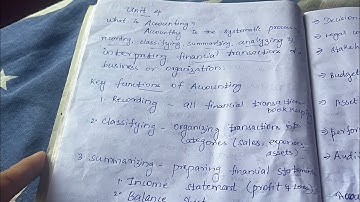 Unit 4
What is Accounting?
Accounting is the systematic process
recording, classifying, summarizing, analyzing &
interpreting financial transactions of a
business or organization.
Key functions of Accounting
1. Recording - all financial transaction
bookkeeping
2. Classifying - organizing transactions into
categories (sales, expenses,
assets)
3. Summarizing - preparing financial statement
1. Income statement (profit & Loss)
2. Balance
→ Decision
→ Legal
→ Budget
→ Asset
→ perfor
→ Audi